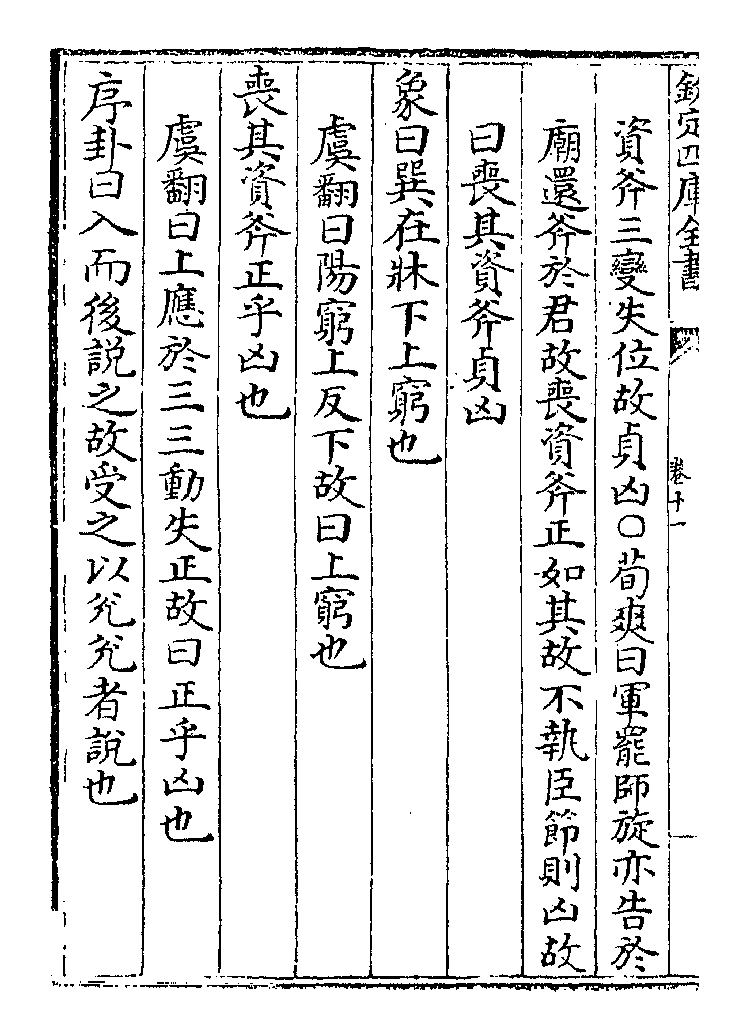 欽定四庫全書
卷十一
資斧三變失位故貞凶〇荀爽曰軍罷師旋亦告於
廟還斧於君故喪資斧正如其故不執臣節則凶故
曰喪其資斧貞凶
象曰巽在牀下上窮也
虞翻曰陽窮上反下故曰上窮也
喪其資斧正乎凶也
虞翻曰上應於三三動失正故曰正乎凶也
序卦曰入而後説之故受之以兊兊者說也